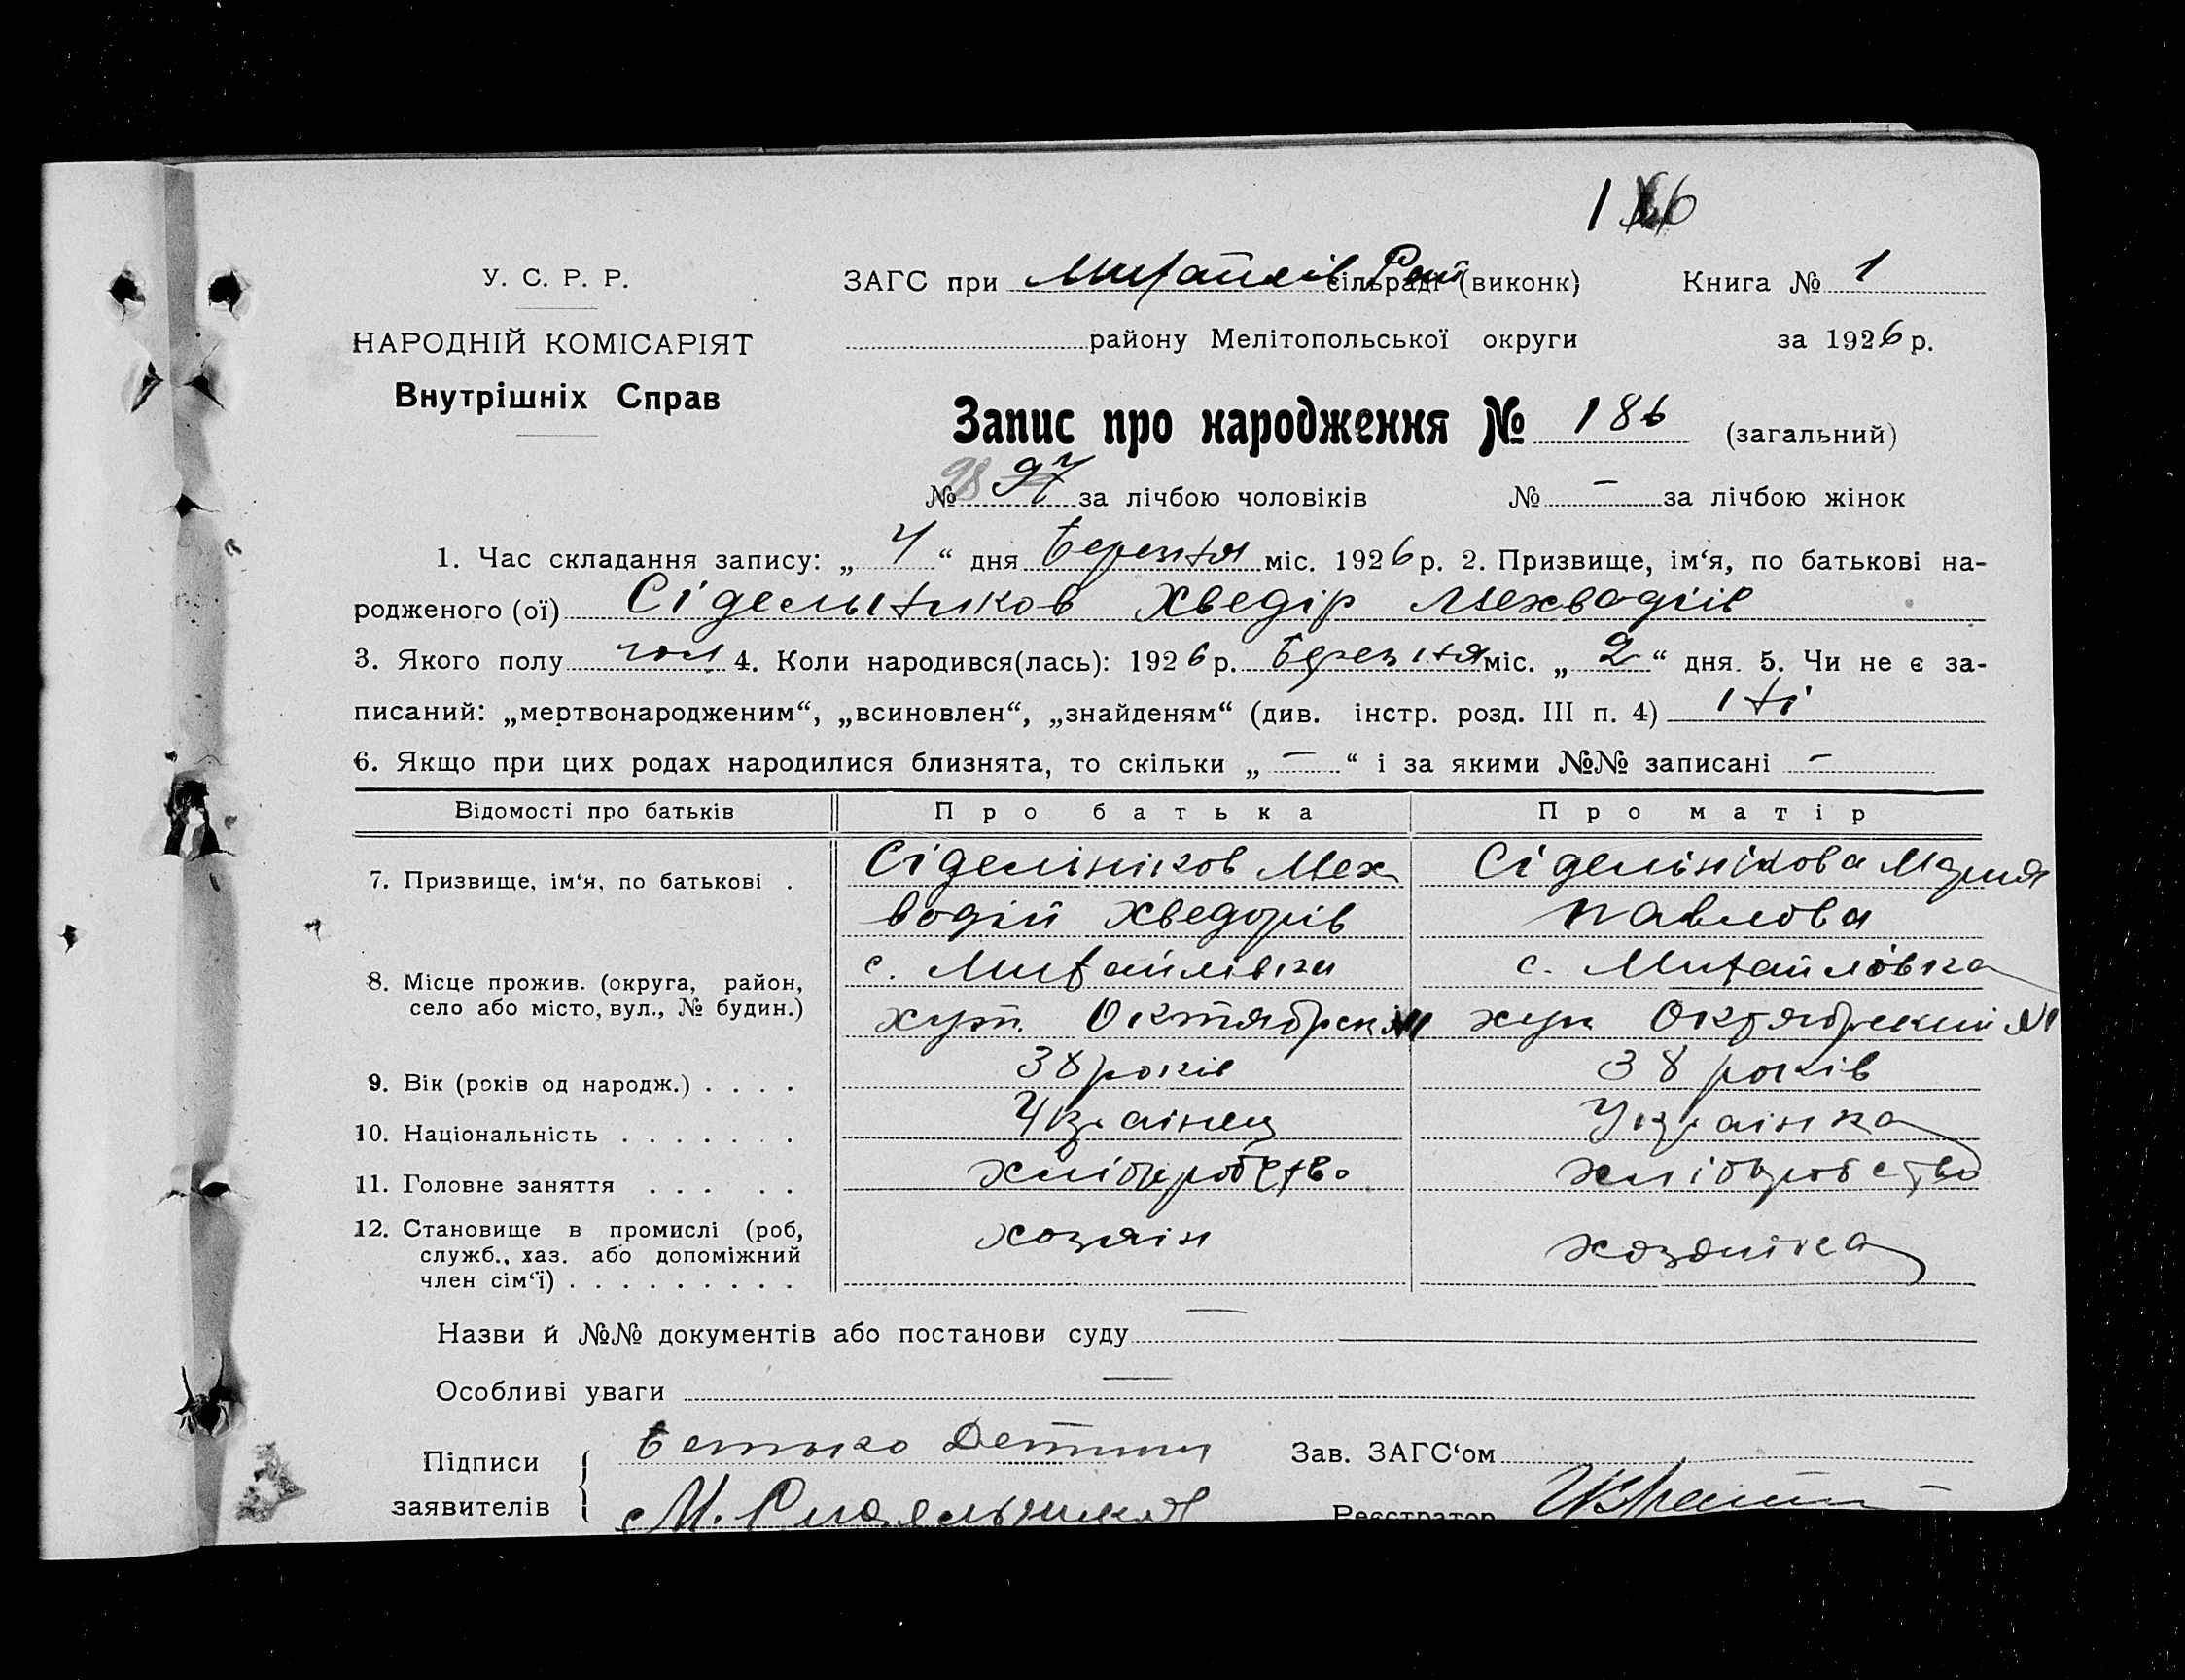 186
У. С. Р. Р.
ЗАГС при Михайлів Рай сільраді (виконк) Книга № 1
НАРОДНІЙ КОМІСАРІЯТ
района Мелітопольської округи за 1926 р.
Внутрішніх Справ
Запис про народження № 186 (загальний)
№ 98 97 за лічбою чоловіків № — за лічбою жінок
1. Час складання запису: „ 4 “ дня березня міс. 1926 р. 2. Призвище, ім‘я, по батькові на-
родженого (ої) Сідельников Хведір Мехводіїв
3. Якого полу чол 4. Коли народився(лась): 1926 р. березня міс. „ 2 “ дня. 5. Чи не є за-
писаний: „мертвонародженим“, „всиновлен“, „знайденям“ (див. інстр. розд. III п. 4) ні
6. Якщо при цих родах народилися близнята, то скільки „ — “ і за якими №№ записані —
Відомості про батьків Про батька Про матір
7. Призвище, ім‘я, по батькові . Сідельніков Мех Сідельнікова Мария
водій Хведорів Павлова
8. Місце прожив. (округа, район, с. Михайлівка с. Михайловка
село або місто, вул., № будин.) хут. Октябрск №1 хут Октябрский №1
9. Вік (років од народж.) . . . . 38 років 38 років
10. Національність . . . . . . . Украінец Украінка
11. Головне заняття . . . . . хліборобство хліборобство
12. Становище в промислі (роб, хозяін хозяйка
служб., хаз. або допоміжний
член сім‘ї) . . . . . . . . .
Назви й №№ документів або постанови суду —
Особливі уваги —
Підписи Батько Детини Зав. ЗАГС‘ом
заявителів М. Сидельников Реєстратор